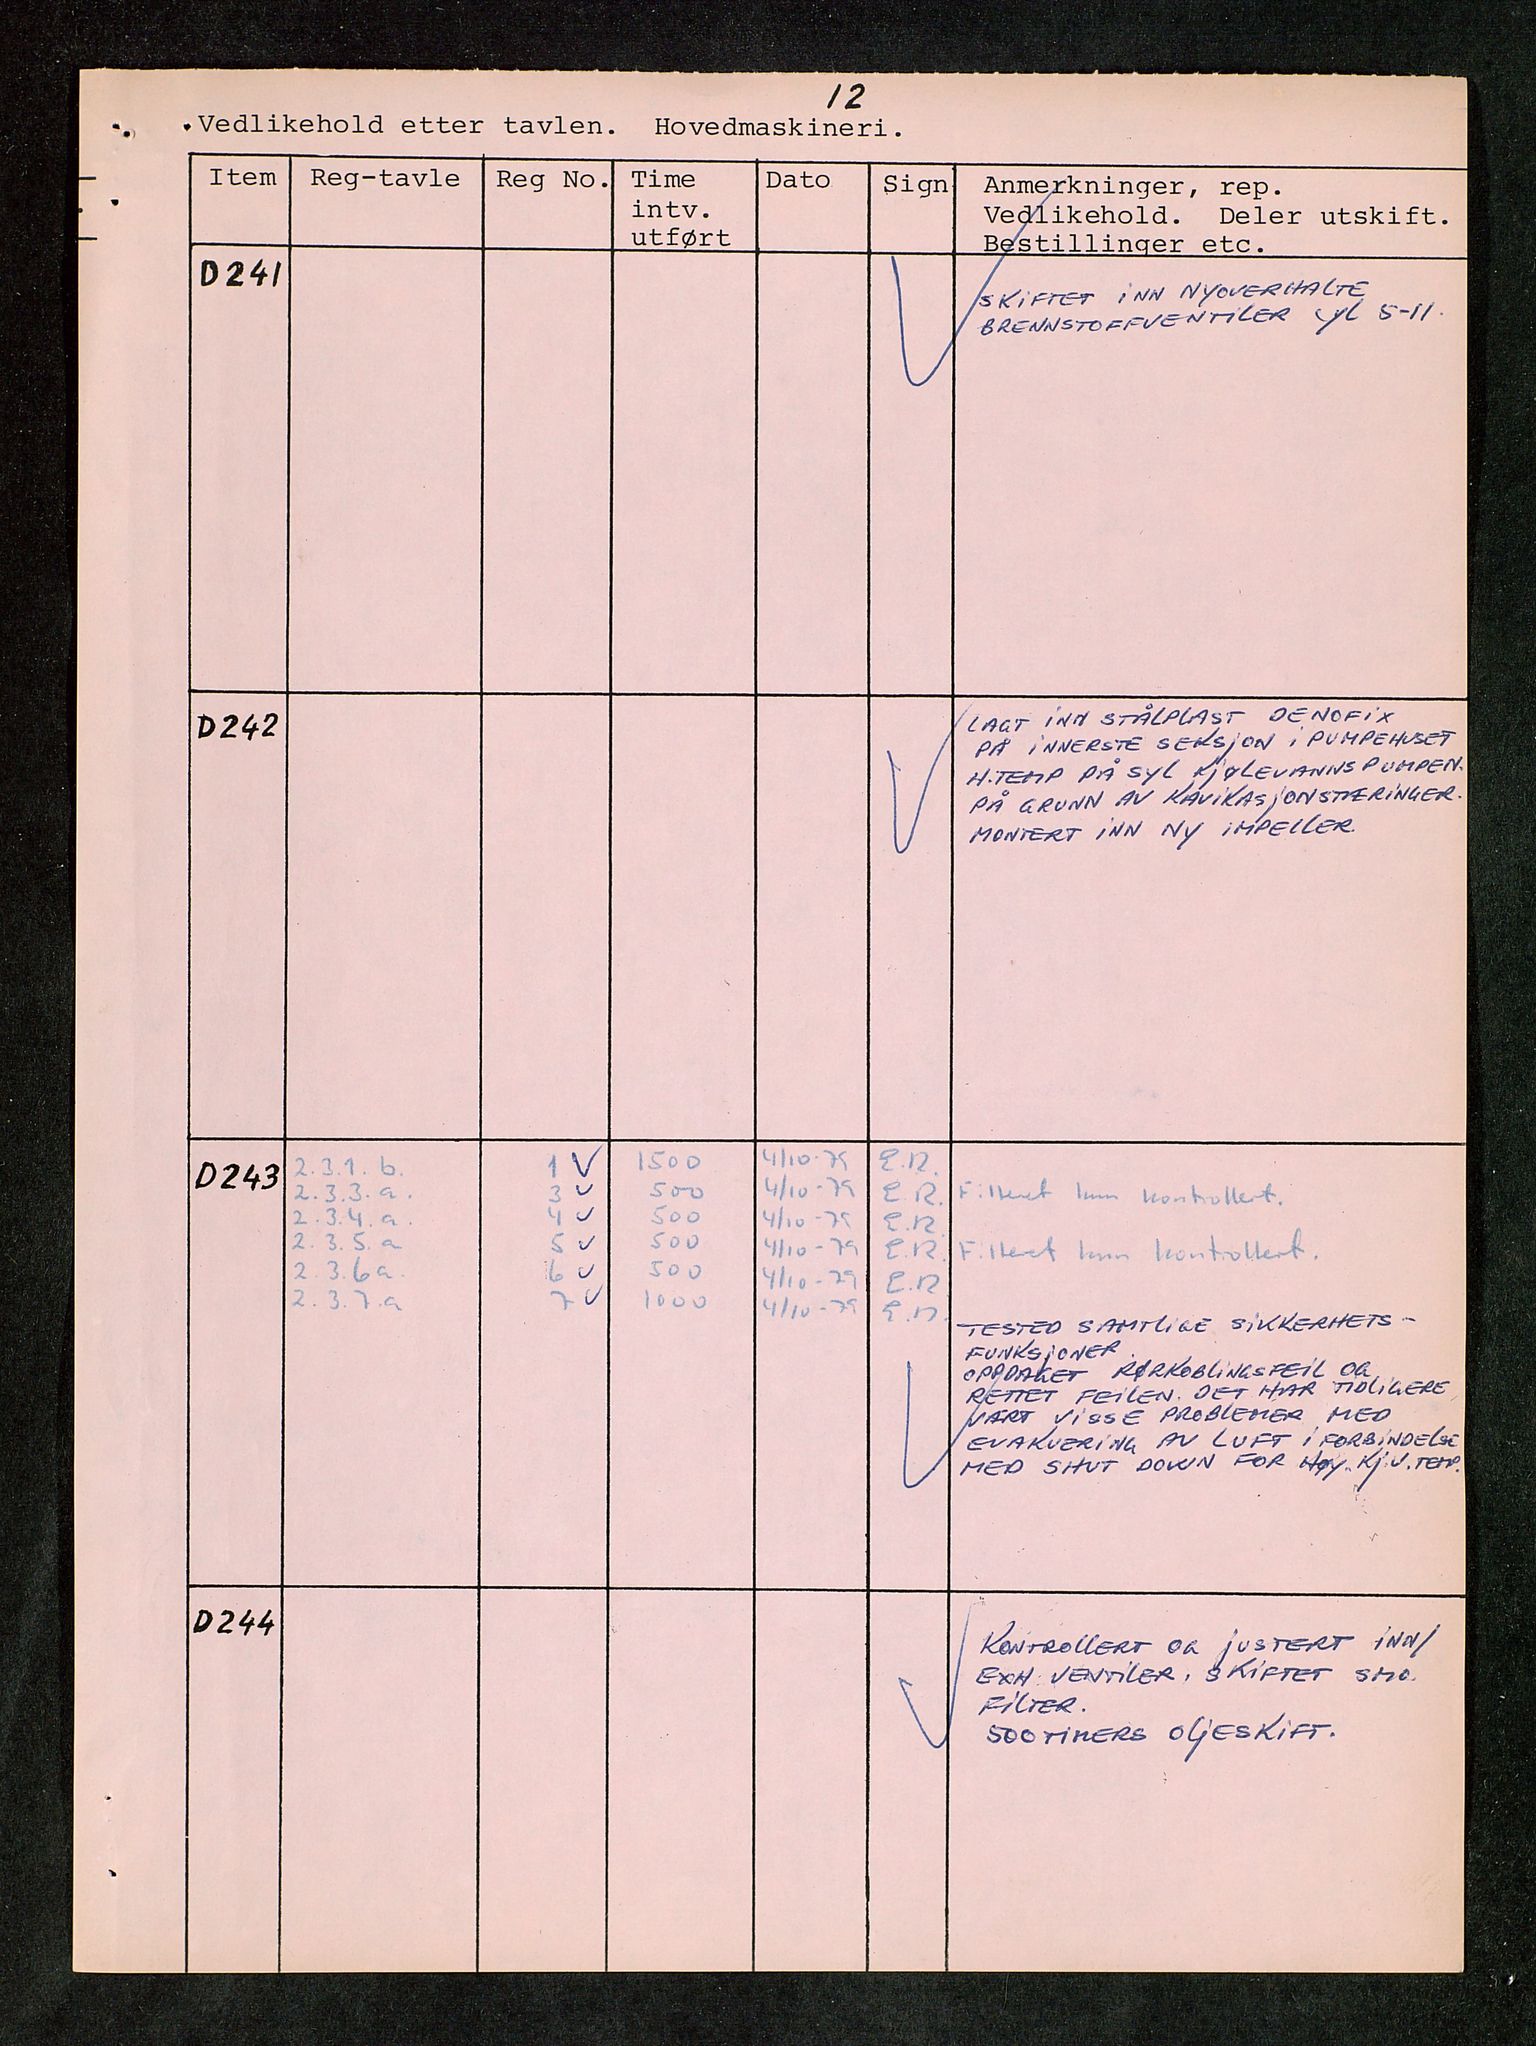 12
Vedlikehold etter tavlen. Hovedmaskineri.
Item Reg-tavle Reg No. Time intv. utført Dato Sign Anmerkninger, rep. Vedlikehold. Deler utskift. Bestillinger etc.
D241
SKIFTET INN NYOVERHALTE
BRENNSTOFFVENTILER CYL 5-11.
D242
LAGT INN STÅLPLAST DENOFIX
PÅ INNERSTE SEKSJON I PUMPEHUSET
H.TEMP PÅ SYL KJØLEVANNSPUMPEN.
PÅ GRUNN AV KAVIKASJONSTÆRINGER.
MONTERT INN NY IMPELLER.
D243
2.3.1.b. 1 ✓ 1500 4/10-79 E.R.
2.3.3.a. 3 ✓ 500 4/10-79 E.R. Filteret kun kontrollert.
2.3.4.a. 4 ✓ 500 4/10-79 E.R.
2.3.5.a 5 ✓ 500 4/10-79 E.R. Filteret kun kontrollert.
2.3.6a. 6 ✓ 500 4/10-79 E.R
2.3.7.a 7 ✓ 1000 4/10-79 E.R.
TESTED SAMTLIGE SIKKERHETS-
FUNKSJONER.
OPPDAGET RØRKOBLINGSFEIL OG
RETTET FEILEN. DET HAR TIDLIGERE
VÆRT VISSE PROBLEMER MED
EVAKUERING AV LUFT I FORBINDELSE
MED SHUT DOWN FOR HØY. KJ.V.TEMP.
D244
KONTROLLERT OG JUSTERT INN/
EXH. VENTILER. SKIFTET SMO.
FILTER.
500 TIMERS OLJESKIFT.